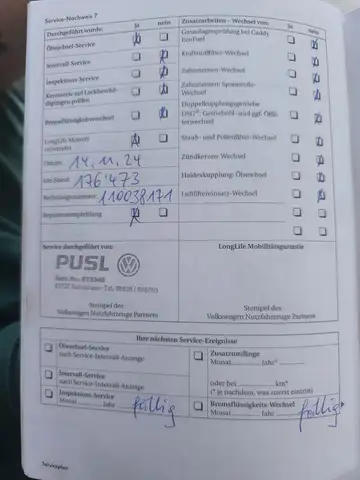 Service-Nachweis 7
Durchgeführt wurde: Ja nein
Ölwechsel-Service
Intervall-Service
Inspektions-Service
Karosserie auf Lackbeschä-
digungen prüfen
Bremsflüssigkeitswechsel
LongLife Motoröl
verwendet
Datum: 14.11.24
km-Stand: 176'473
Rechnungsnummer: 110038171
Reparaturempfehlung
Zusatzarbeiten - Wechsel von: Ja nein
Gasanlagenprüfung bei Caddy
EcoFuel
Kraftstofffilter-Wechsel
Zahnriemen-Wechsel
Zahnriemen-Spannrolle-
Wechsel
Doppelkupplungsgetriebe
DSG®: Getriebeöl- und ggf. Ölfil-
terwechsel
Staub- und Pollenfilter-Wechsel
Zündkerzen-Wechsel
Haldexkupplung: Ölwechsel
Luftfiltereinsatz-Wechsel
Service durchgeführt von:
PUSL
Stempel des
Volkswagen Nutzfahrzeuge Partners
LongLife Mobilitätsgarantie
Stempel des
Volkswagen Nutzfahrzeuge Partners
Ihre nächsten Service-Ereignisse
Ölwechsel-Service
nach Service-Intervall-Anzeige
Intervall-Service
nach Service-Intervall-Anzeige
Inspektions-Service
Monat Jahr fällig
Zusatzumfänge
Monat Jahr*
oder bei km*
(* je nachdem, was zuerst eintritt)
Bremsflüssigkeits-Wechsel
Monat Jahr fällig
Serviceplan